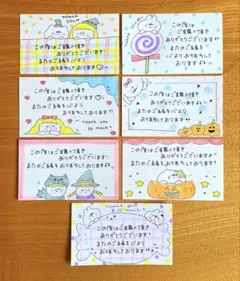 THANK YOU!!
この度はご購入頂き
ありがとうございます!
またのご縁を心より
お待ちしております
この度はご購入頂き
ありがとうございます!
またのご縁を心より
お待ちしております
この度はご購入頂き
ありがとうございます!
またのご縁を心より
お待ちしております
THANK YOU
SO MUCH!
この度はご購入頂き
ありがとうございます!
またのご縁を心より
お待ちしております
この度はご購入頂き
ありがとうございます!
またのご縁を心より
お待ちしております
この度はご購入頂き
ありがとうございます!
またのご縁を心より
お待ちしております
THANK YOU
この度はご購入頂き
ありがとうございます!
またのご縁を心より
お待ちしております